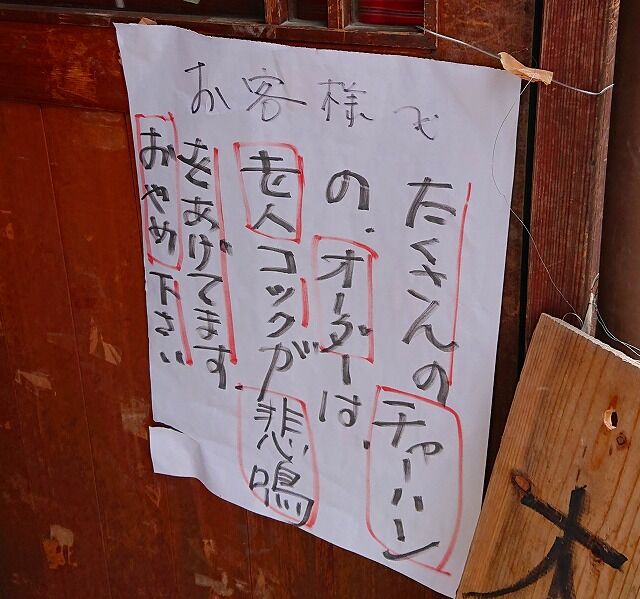 お客様で
たくさんのチャーハン
の、オーダーは、
老人コックが悲鳴
をあげてます
おやめ下さい
木